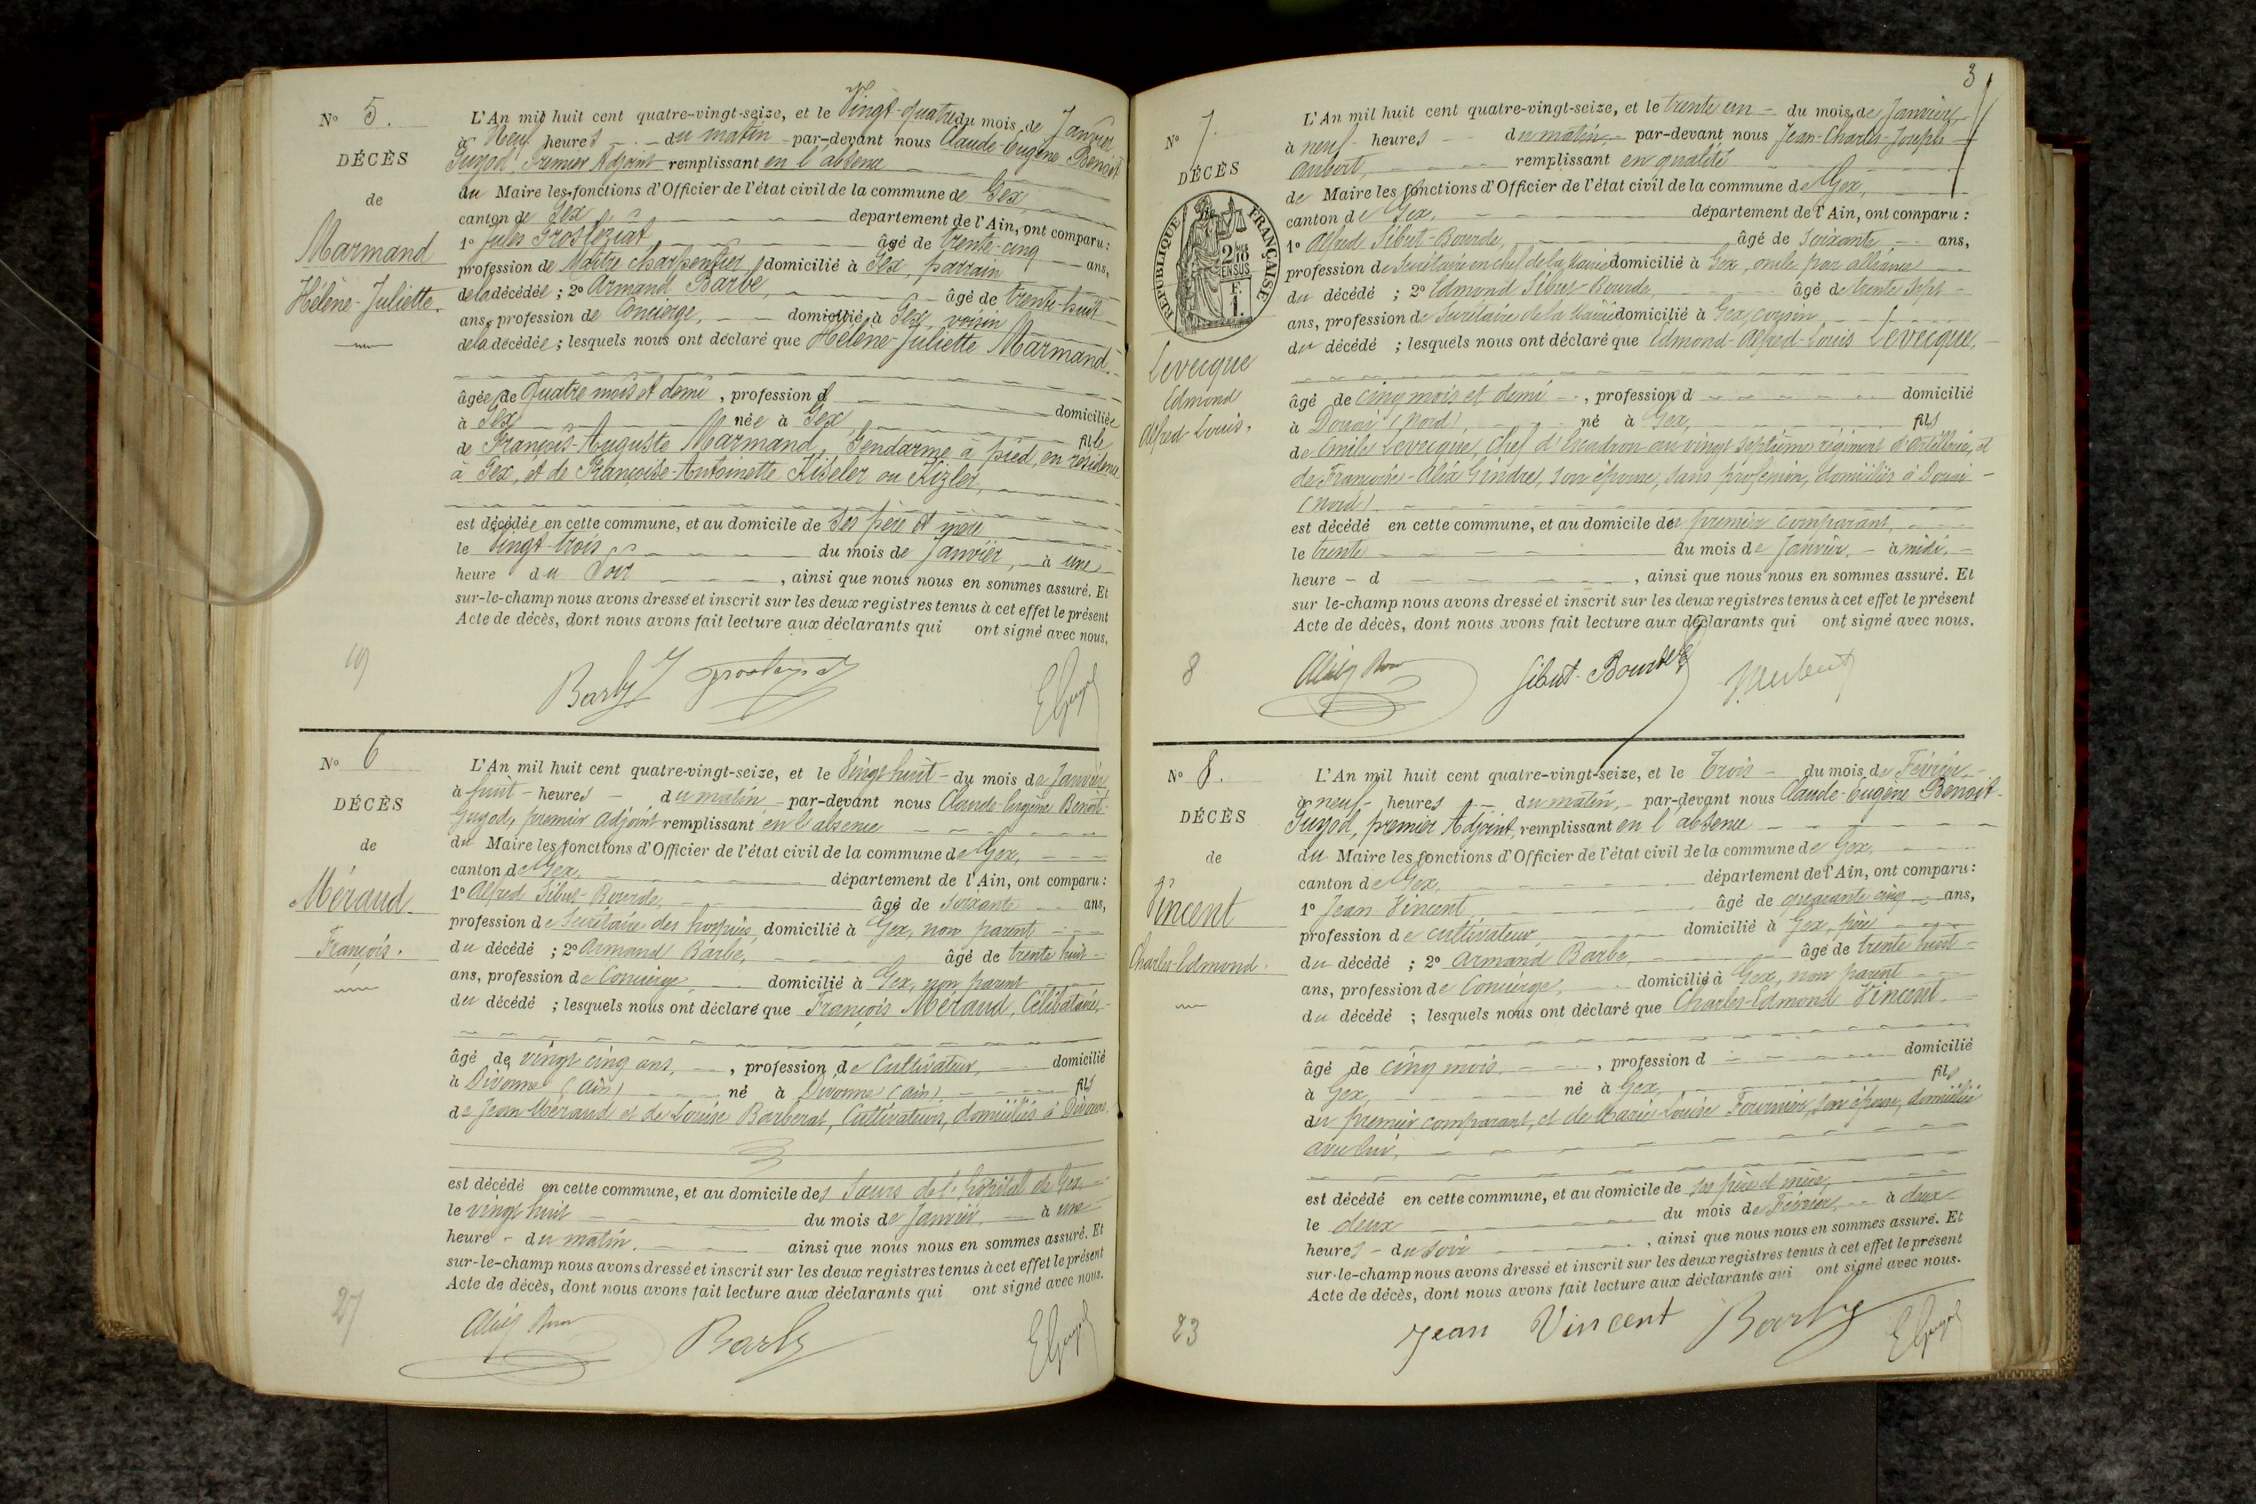 N° 5.
DÉCÈS
de
Marmand
Hélène-Juliette.
L'An mil huit cent quatre-vingt-seize, et le Vingt-quatre du mois de Janvier
à Neuf heures du matin par-devant nous Claude-Eugène-Benoit
Guyod, Premier Adjoint remplissant en l'absence
du Maire les fonctions d'Officier de l'état civil de la commune de Gex,
canton de Gex département de l'Ain, ont comparu :
1° Jules Grosleziat âgé de trente-cinq ans,
profession de Maître Charpentier, domicilié à Gex, parrain
de la décédée ; 2° Armand Barbe, âgé de trente-huit
ans, profession de Concierge, domicilié à Gex, voisin
de la décédée ; lesquels nous ont déclaré que Hélène-Juliette Marmand.
âgée de Quatre mois et demi, profession d domiciliée
à Gex née à Gex, fille
de François-Auguste Marmand, Gendarme à pied, en résidence
à Gex, et de Françoise-Antoinette Kiseler ou Kizler,
est décédée en cette commune, et au domicile de ses père et mère
le Vingt-trois du mois de Janvier, à une
heure du Soir, ainsi que nous nous en sommes assuré. Et
sur-le-champ nous avons dressé et inscrit sur les deux registres tenus à cet effet le présent
Acte de décès, dont nous avons fait lecture aux déclarants qui ont signé avec nous.
19
Barbe EGuyod
N° 6
DÉCÈS
de
Méraud
François.
L'An mil huit cent quatre-vingt-seize, et le Vingt huit du mois de Janvier
à huit heures du matin par-devant nous Claude-Eugène Benoit-
Guyod, premier Adjoint remplissant en l'absence
du Maire les fonctions d'Officier de l'état civil de la commune de Gex,
canton de Gex, département de l'Ain, ont comparu :
1° Alfred Sibut-Bourde, âgé de soixante ans,
profession de Secrétaire des hospices, domicilié à Gex, non parent
du décédé ; 2° Armand Barbe, âgé de trente huit
ans, profession de Concierge, domicilié à Gex, non parent
du décédé ; lesquels nous ont déclaré que François Méraud, Célibataire,
âgé de vingt cinq ans, profession de Cultivateur, domicilié
à Divonne (ain) né à Divonne (ain) fils
de Jean Méraud et de Louise Barberat, Cultivateurs, domiciliés à Divonne.
est décédé en cette commune, et au domicile des Sœurs de l'hôpital de Gex
le vingt huit du mois de Janvier à une
heure du matin. ainsi que nous nous en sommes assuré. Et
sur-le-champ nous avons dressé et inscrit sur les deux registres tenus à cet effet le présent
Acte de décès, dont nous avons fait lecture aux déclarants qui ont signé avec nous.
27
Barbe EGuyod
3
N° 7.
DÉCÈS
RÉPUBLIQUE FRANÇAISE
2/10 EN SUS
F.
1.
Levecque
Edmond
Alfred-Louis.
L'An mil huit cent quatre-vingt-seize, et le trente un du mois de Janvier
à neuf heures du matin, par-devant nous Jean-Charles-Joseph
Aubert, remplissant en qualité
de Maire les fonctions d'Officier de l'état civil de la commune de Gex,
canton de Gex, département de l'Ain, ont comparu :
1° Alfred Sibut-Bourde, âgé de soixante ans,
profession de Secrétaire en chef de la Mairie domicilié à Gex, oncle par alliance
du décédé ; 2° Edmond Sibut-Bourde, âgé de trente sept
ans, profession de Secrétaire de la Mairie domicilié à Gex, cousin
du décédé ; lesquels nous ont déclaré que Edmond-Alfred-Louis Levecque,
âgé de cinq mois et demi, profession d domicilié
à Douai (Nord) né à Gex, fils
de Emile Levecque, Chef d'Escadron au vingt septième régiment d'artillerie, et
de Françoise-Aléa Gindre, son épouse, sans profession, domiciliés à Douai
(Nord)
est décédé en cette commune, et au domicile du premier comparant,
le trente du mois de Janvier, à midi.
heure d, ainsi que nous nous en sommes assuré. Et
sur le-champ nous avons dressé et inscrit sur les deux registres tenus à cet effet le présent
Acte de décès, dont nous avons fait lecture aux déclarants qui ont signé avec nous.
8
Sibut-Bourde J. Aubert
N° 8.
DÉCÈS
de
Vincent
Charles-Edmond.
L'An mil huit cent quatre-vingt-seize, et le Trois du mois de Février
à neuf heures du matin, par-devant nous Claude-Eugène Benoit-
Guyod, premier Adjoint, remplissant en l'absence
du Maire les fonctions d'Officier de l'état civil de la commune de Gex,
canton de Gex, département de l'Ain, ont comparu :
1° Jean Vincent âgé de quarante cinq ans,
profession de cultivateur, domicilié à Gex, père
du décédé ; 2° Armand Barbe, âgé de trente huit
ans, profession de Concierge, domicilié à Gex, non parent
du décédé ; lesquels nous ont déclaré que Charles-Edmond Vincent.
âgé de cinq mois, profession d domicilié
à Gex, né à Gex, fils
du premier comparant, et de Marie Louise Fournier, son épouse, domiciliée
avec lui,
est décédé en cette commune, et au domicile de ses père et mère,
le deux du mois de Février, à deux
heures du soir, ainsi que nous nous en sommes assuré. Et
sur-le-champ nous avons dressé et inscrit sur les deux registres tenus à cet effet le présent
Acte de décès, dont nous avons fait lecture aux déclarants qui ont signé avec nous.
23
Jean Vincent Barbe EGuyod